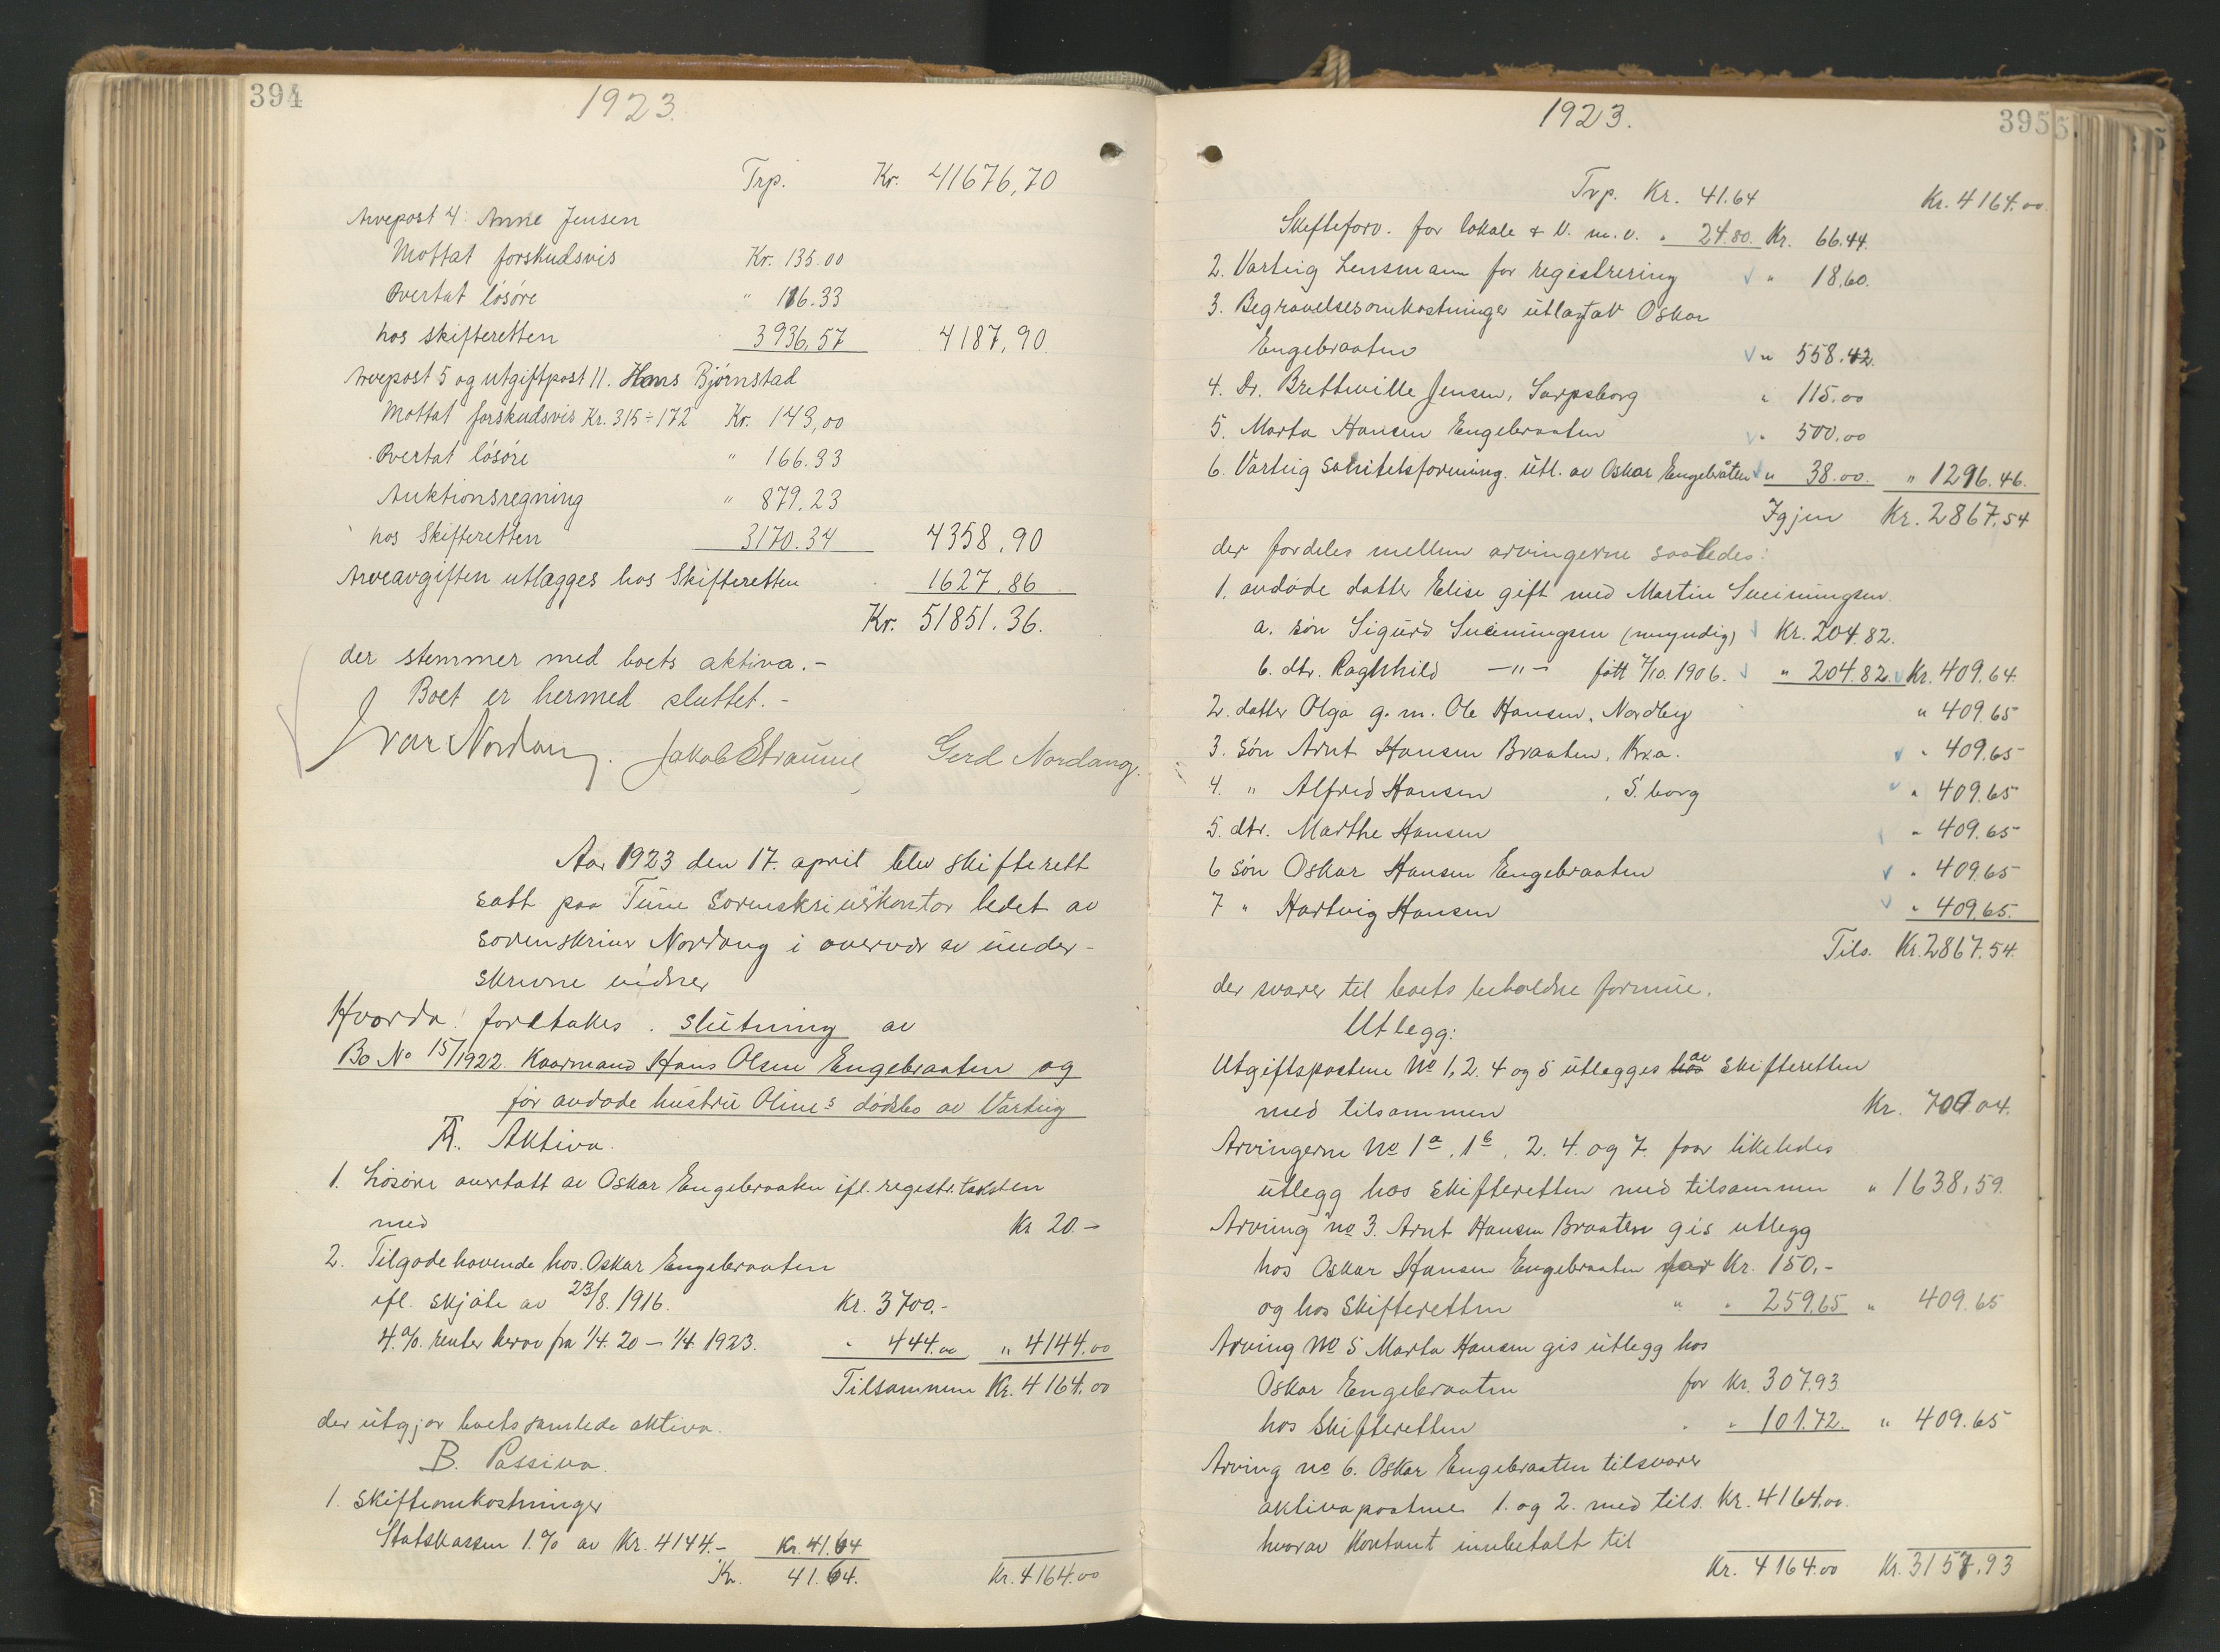 394
1923.
Trp. Kr. 41676,70
Arvepost 4: Anne Jensen
Mottat forskudsvis Kr. 135.00
Overtat løsøre " 116.33
hos skifteretten 3936,57 4187,90
Arvepost 5 og utgiftpost 11. Hans Bjørnstad
Mottat forskudsvis Kr. 315 ÷ 172 Kr. 143,00
Overtat løsøre " 166.33
Auktionsregning " 879.23
hos Skifteretten 3170.34 4358,90
Arveavgiften utlægges hos Skifteretten 1627,86
Kr. 51851.36.
der stemmer med boets aktiva.-
Boet er hermed sluttet.-
Ivar Nordang. Jakob Straume Gerd Nordang.
Aar 1923 den 17. april blev skifterett
satt paa Tune Sorenskriverkontor ledet av
sorenskriver Nordang i overvær av under-
skrevne vidner
Hvorda! foretakes. slutning av
Bo No 15/1922. Kaarmand Hans Olsen Engebraaten og
før avdøde hustru Olines dødsbo av Varteig
A. Aktiva.
1. Løsøre overtatt av Oskar Engebraaten ifl. registr. taksten
med Kr 20.-
2. Tilgodehavende hos. Oskar Engebraaten
ifl. skjøte av 23/8. 1916. Kr. 3700.-
4.% renter herav fra 1/4. 20 - 1/4. 1923. " 444.00 " 4144.00
Tilsammen Kr. 4164.00
der utgjør boets samlede aktiva.
B. Passiva.
1. Skifteomkostninger
Statskassen 1.% av Kr. 4144.- Kr. 41.64
Kr. 41.64. Kr. 4164.00
395
1923.
Trp. Kr. 41.64 Kr. 4164.00
Skifteforv. for lokale & V. m.v. " 24.80. Kr. 66.44.
2. Varteig Lensmann for registrering " 18.60.
3. Begravelsesomkostninger utlagt av Oskar
Engebraaten " 558.42.
4. Dr. Bretteville Jensen, Sarpsborg " 115.00
5. Marta Hansen Engebraaten " 500.00
6. Varteig sanitetsforening. utl. av Oskar Engebråten " 38.00. " 1296.46.
Igjen Kr. 2867.54
der fordeles mellem arvingerne saaledes:
1. avdøde datter Elise gift med Martin Sveinungsen.
a. søn Sigurd Sveinungsen (myndig) Kr. 204.82.
b. dtr. Ragnhild -"- født 7/10. 1906. " 204.82. Kr. 409.64.
2. datter Olga g. m. Ole Hansen, Nordby " 409.65
3. søn Arnt Hansen Braaten, Kr.a. " 409.65
4. " Alfred Hansen , S.borg " 409.65
5. dtr. Marthe Hansen " 409.65
6 søn Oskar Hansen Engebraaten " 409.65
7 " Hartvig Hansen " 409.65.
Tils. Kr. 2867.54.
der svarer til boets beholdne formue.
Utlegg:
Utgiftspostene No 1, 2. 4 og 5 utlegges av skifteretten
med tilsammen Kr. 700.04.
Arvingerne No 1a, 1b, 2. 4. og 7. faar likeledes
utlegg hos skifteretten med tilsammen " 1638,59.
Arving no 3. Arnt Hansen Braaten gis utlegg
hos Oskar Hansen Engebraaten for Kr. 150.-
og hos Skifteretten " " 259.65 " 409.65
Arving No 5 Marta Hansen gis utlegg hos
Oskar Engebraaten for Kr. 307.93
hos Skifteretten " " 101.72. " 409.65
Arving no 6. Oskar Engebraaten tilsvarer
aktivapostene 1. og 2. med tils. Kr. 4164.00.
hvorav kontant innbetalt til
Kr. 4164.00 Kr. 3157.93